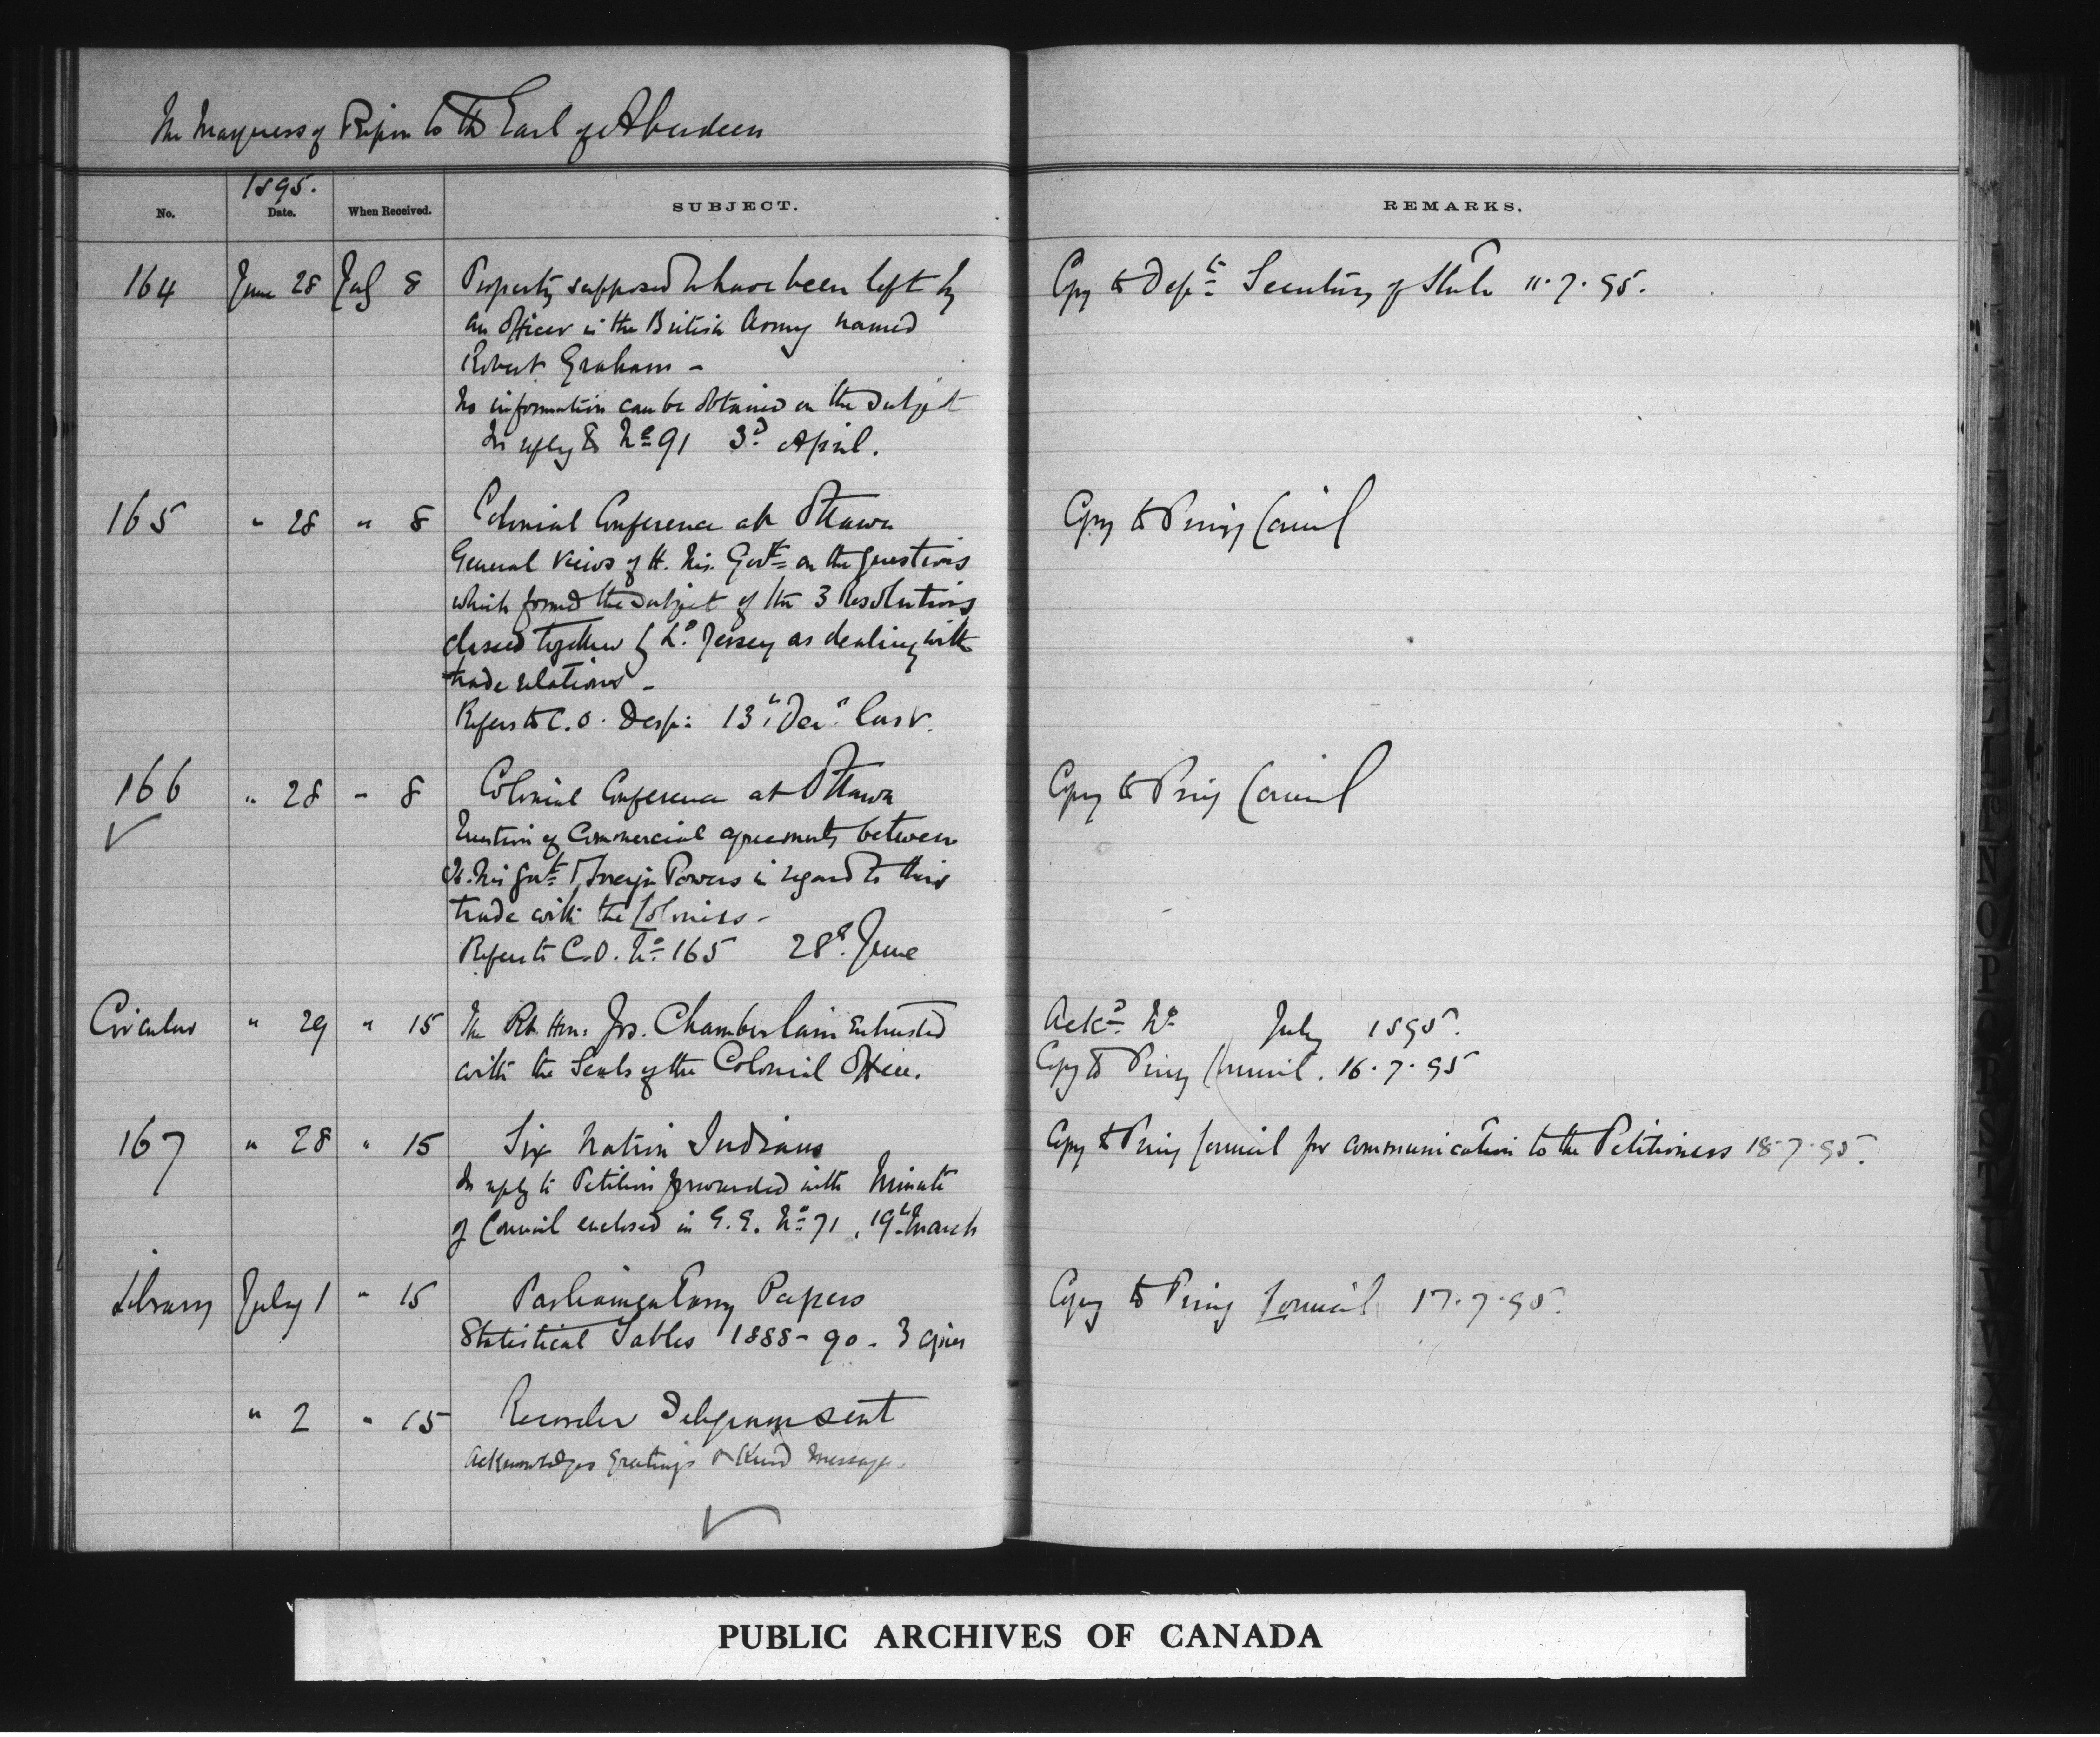 The Marquess of Ripon to the Earl of Aberdeen
1895.
No. Date. When Received. SUBJECT. REMARKS.
164 June 28 July 8 Property supposed to have been left by Copy to Dept Secretary of State 11.7.95.
an Officer in the British Army named
Robert Graham -
No information can be obtained on the subject
In reply to No 91 3d April.
165 " 28 " 8 Colonial Conference at Ottawa Copy to Privy Council
General views of H. M. Govt on the questions
which formed the subject of the 3 Resolutions
classed together by Ld Jersey as dealing with
trade relations -
Refers to C.O. Desp: 13th Decr last.
166 " 28 " 8 Colonial Conference at Ottawa Copy to Privy Council
Question of Commercial agreements between
H. M. Govt & Foreign Powers in regard to their
trade with the Colonies -
Refers to C.O. No 165 28th June
Circular " 29 " 15 The Rt Hon: Jos. Chamberlain entrusted Ackd No July 1895.
with the Seals of the Colonial Office. Copy to Privy Council. 16.7.95
167 " 28 " 15 Six Nation Indians Copy to Privy Council for communication to the Petitioners 18.7.95.
In reply to Petition forwarded with Minute
of Council enclosed in G.G. No 71, 19th March
Library July 1 " 15 Parliamentary Papers Copy to Privy Council 17.7.95.
Statistical Tables 1888-90 - 3 copies
" 2 " 15 Recorder Telegram sent
Acknowledges greetings & kind message.
PUBLIC ARCHIVES OF CANADA